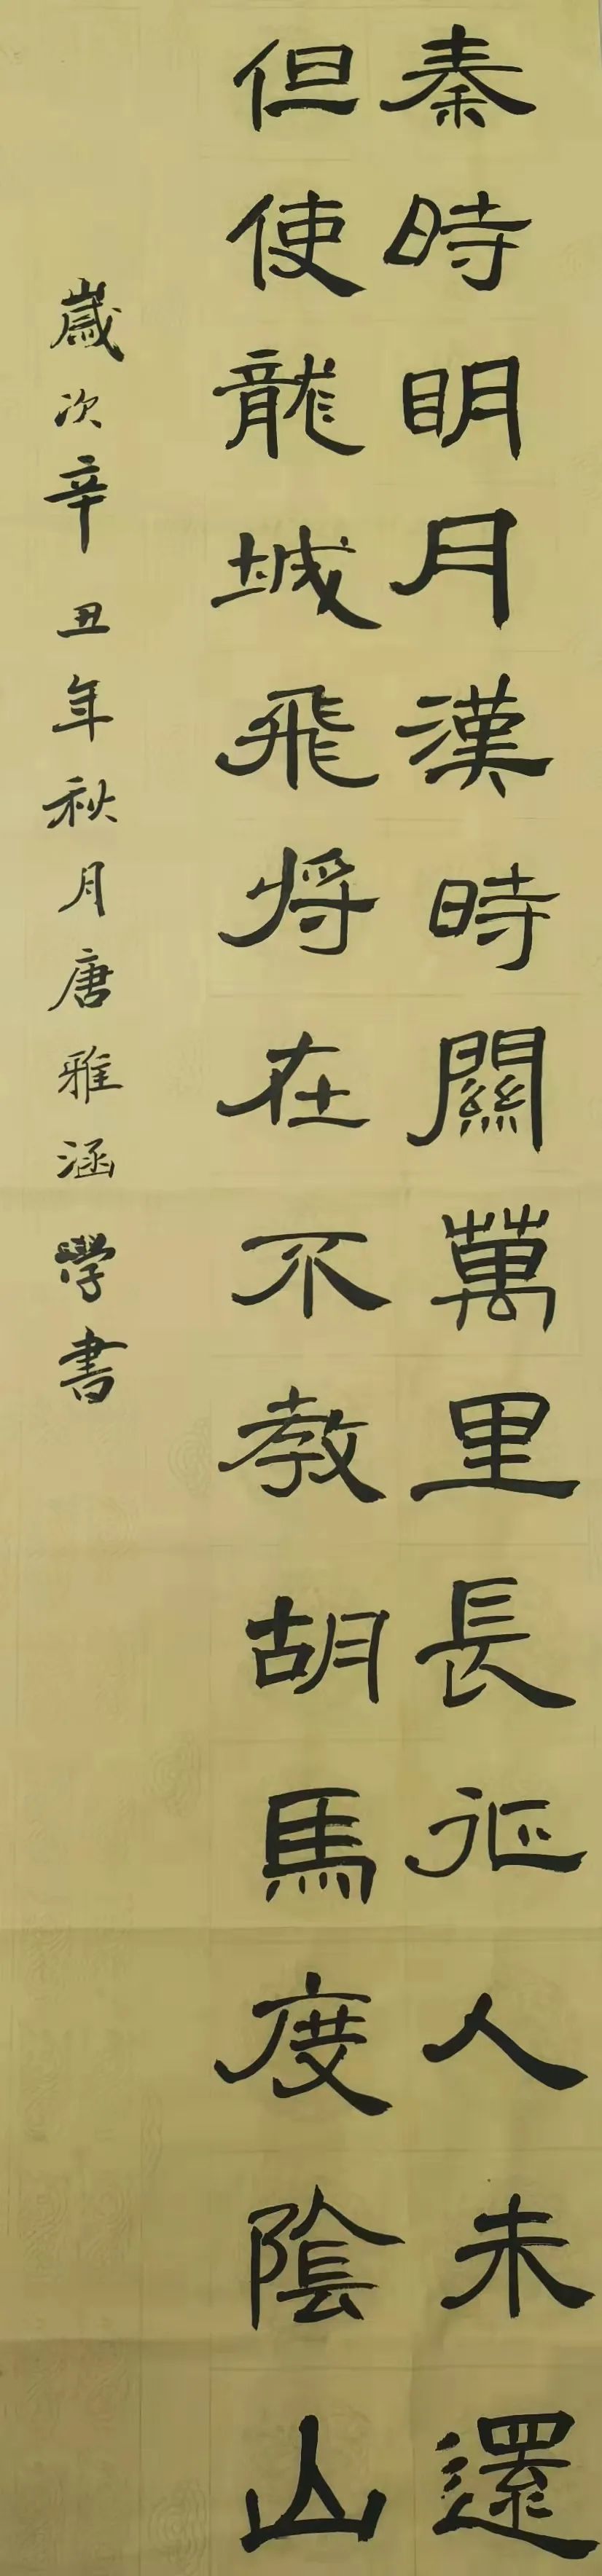 秦時明月漢時關萬里長征人未還
但使龍城飛将在不教胡馬度陰山
歲次辛丑年秋月唐雅涵學書